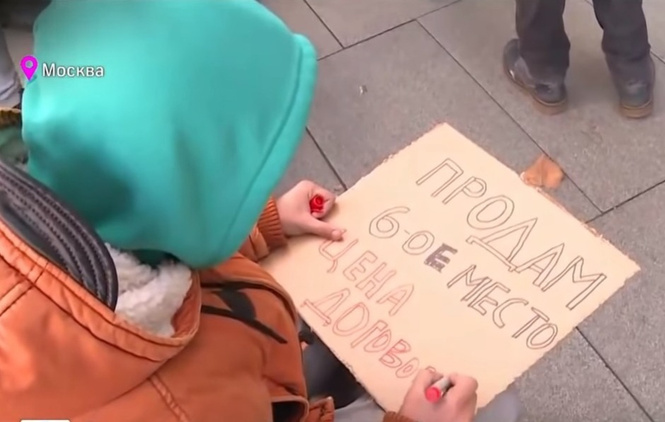 Москва
ПРОДАМ
6-ОЕ МЕСТО
ЦЕНА
ДОГОВО